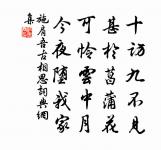 十訪九不見
甚於菖蒲花
可憐雲中月
今夜墮我家
施肩吾古相思詞典網
集